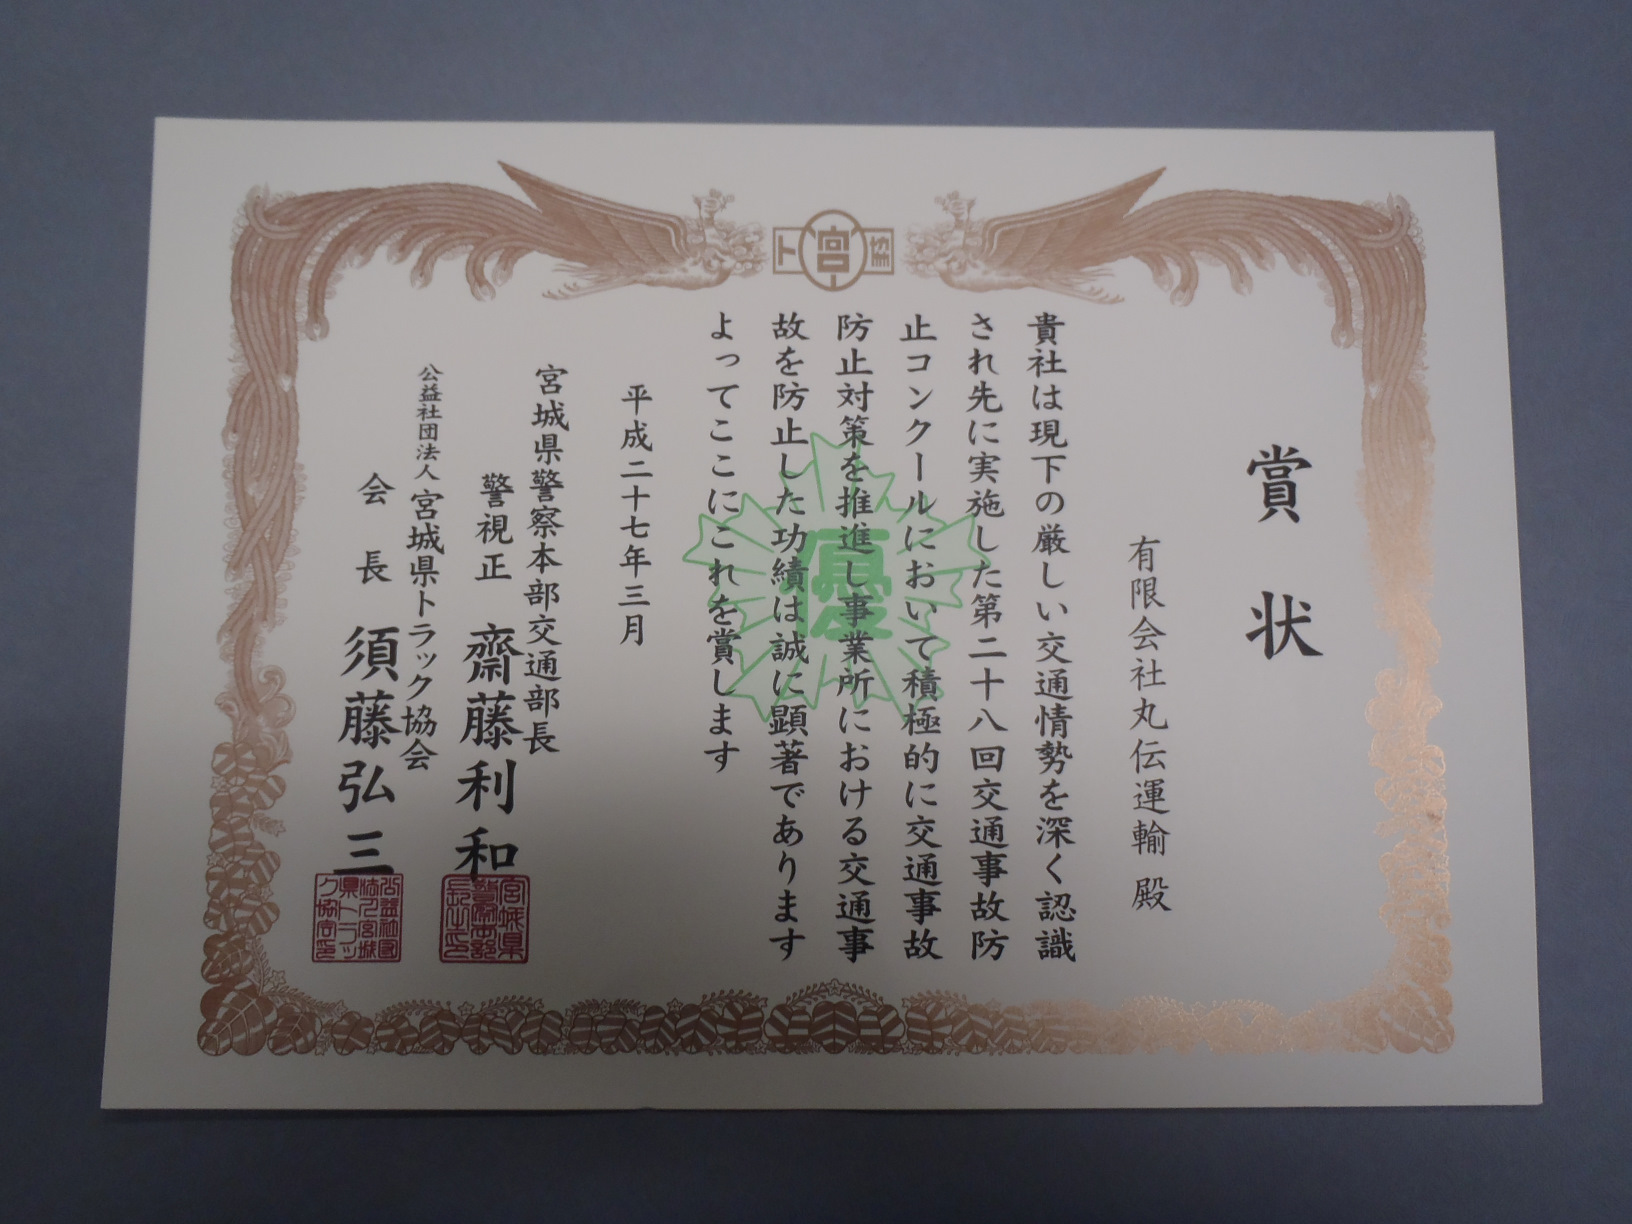 ト宮協
賞状
有限会社丸伝運輸 殿
貴社は現下の厳しい交通情勢を深く認識
され先に実施した第二十八回交通事故防
止コンクールにおいて積極的に交通事故
防止対策を推進し事業所における交通事
故を防止した功績は誠に顕著であります
よってここにこれを賞します
優
平成二十七年三月
宮城県警察本部交通部長
警視正 齋藤利和
公益社団法人宮城県トラック協会
会長 須藤弘三